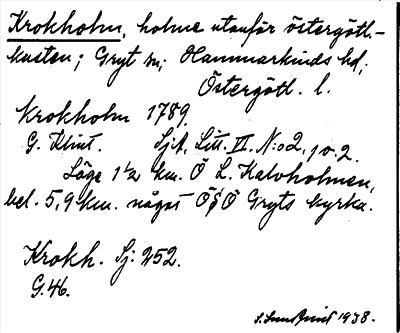 Krokholm, holme utanför östergötl.-
kusten; Gryt sn; Hammarkinds hd,
Östergötl. l.
Krokholm 1789.
G. Klint. Sjk. Litt. VI. N:o 2, p. 2.
Läge 1½ km. Ö L. Kalvholmen,
bel. 5,9 km. något ÖSÖ Gryts kyrka.
Krokh. Sj: 252.
G. 46.
1938.